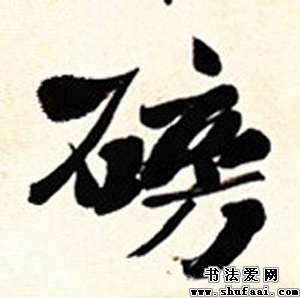 磅
书法爱网
www.shufaai.com